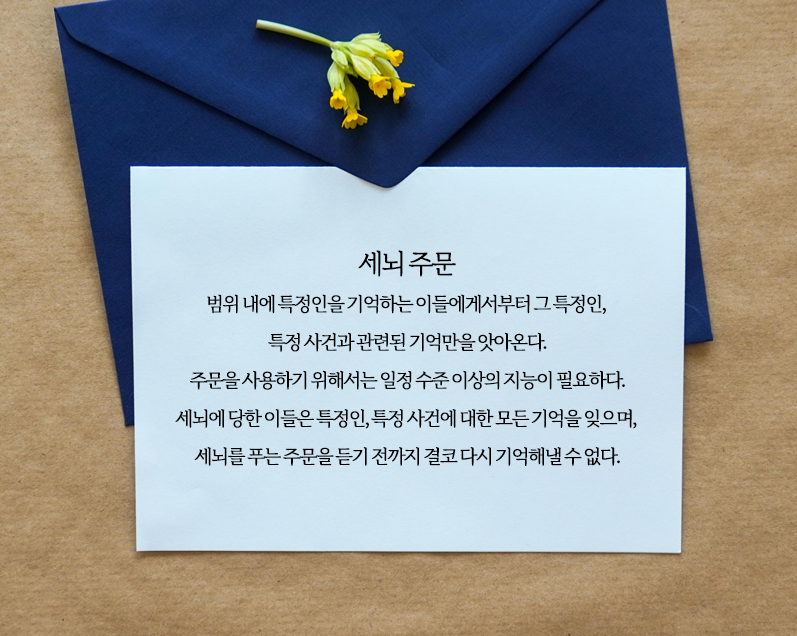 세뇌 주문
범위 내에 특정인을 기억하는 이들에게서부터 그 특정인,
특정 사건과 관련된 기억만을 앗아온다.
주문을 사용하기 위해서는 일정 수준 이상의 지능이 필요하다.
세뇌에 당한 이들은 특정인, 특정 사건에 대한 모든 기억을 잊으며,
세뇌를 푸는 주문을 듣기 전까지 결코 다시 기억해낼 수 없다.